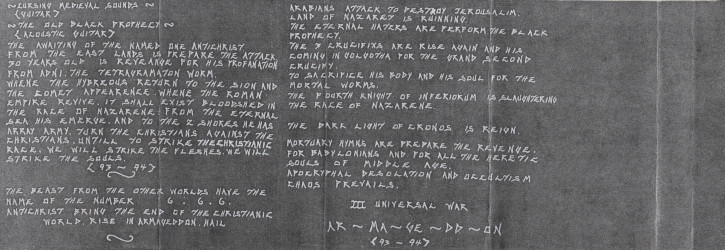 ~CURSING MEDIEVAL SOUNDS~
{GUITAR}
~THE OLD BLACK PROPHECY~
{ACOUSTIC GUITAR}
THE AWAITING OF THE NAMED ONE ANTICHRIST
FROM THE EAST LANDS IS PREPARE THE ATTACK.
30 YEARS OLD IS REVEANGE FOR HIS PROFANATION
FROM ADNI. THE TETRAGRAMATON WORM.
WHENE THE HYBREOUS RETURN TO THE SION AND
THE COMET APPEARENCE. WHENE THE ROMAN
EMPIRE REVIVE. IT SHALL EXIST BLOODSHED IN
THE RACE OF NAZARENE. FROM THE ETERNAL
SEA HIS EMERGE. AND TO THE 2 SHORES HE HAS
ARRAY ARMY. TURN THE CHRISTIANS AGAINST THE
CHRISTIANS. UNTILL TO STRIKE THE CHRISTIANIC
RACE. WE WILL STRIKE THE FLESHES. WE WILL
STRIKE THE SOULS.
{93 - 94}
THE BEAST FROM THE OTHER WORLDS HAVE THE
NAME OF THE NUMBER 6. 6. 6.
ANTICHRIST BRING THE END OF THE CHRISTIANIC
WORLD. RISE IN ARMAGEDDON. HAIL
ARABIANS ATTACK TO DESTROY JEROUSALIM.
LAND OF NAZARET IS RUINNING.
THE ETERNAL HATERS ARE PERFORM THE BLACK
PROPHECY.
THE 3 CRUCIFIXS ARE RISE AGAIN AND HIS
COMING IN GOLGOTHA FOR THE GRAND SECOND
CRUCIFY.
TO SACRIFICE HIS BODY AND HIS SOUL FOR THE
MORTAL WORMS.
THE FOURTH KNIGHT OF INFERIORUM IS SLAUGHTERING
THE RACE OF NAZARENE.
THE DARK LIGHT OF CRONOS IS REIGN.
MORTUARY HYMNS ARE PREPARE THE REVENGE.
FOR BABYLONIANS AND FOR ALL THE HERETIC
SOULS OF MIDDLE AGE.
APOCRIPHAL DESOLATION AND OCCULTISM
CHAOS PREVAILS.
III UNIVERSAL WAR
AR ~ MA ~ GE ~ DD ~ ON
{93 - 94}